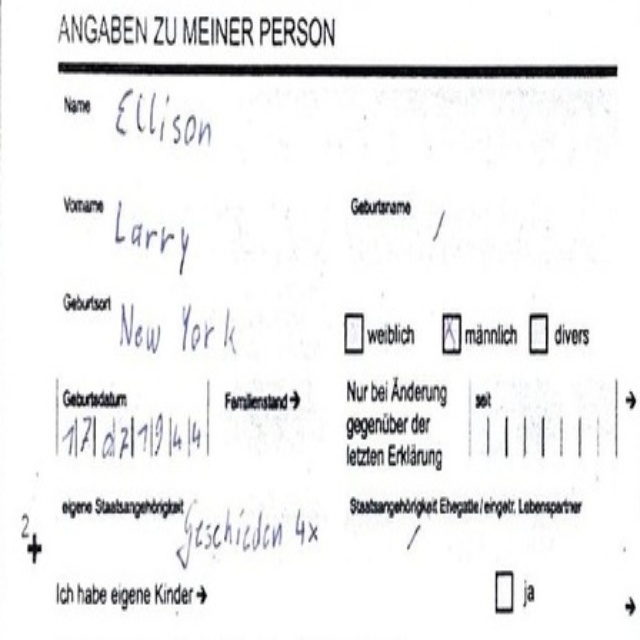 ANGABEN ZU MEINER PERSON
Name Ellison
Vorname Larry Geburtsname /
Geburtsort New York weiblich männlich divers
Geburtsdatum Familienstand → Nur bei Änderung gegenüber der letzten Erklärung seit →
17071944
eigene Staatsangehörigkeit Geschieden 4x Staatsangehörigkeit Ehegatte / eingetr. Lebenspartner /
2
+
Ich habe eigene Kinder → ja →